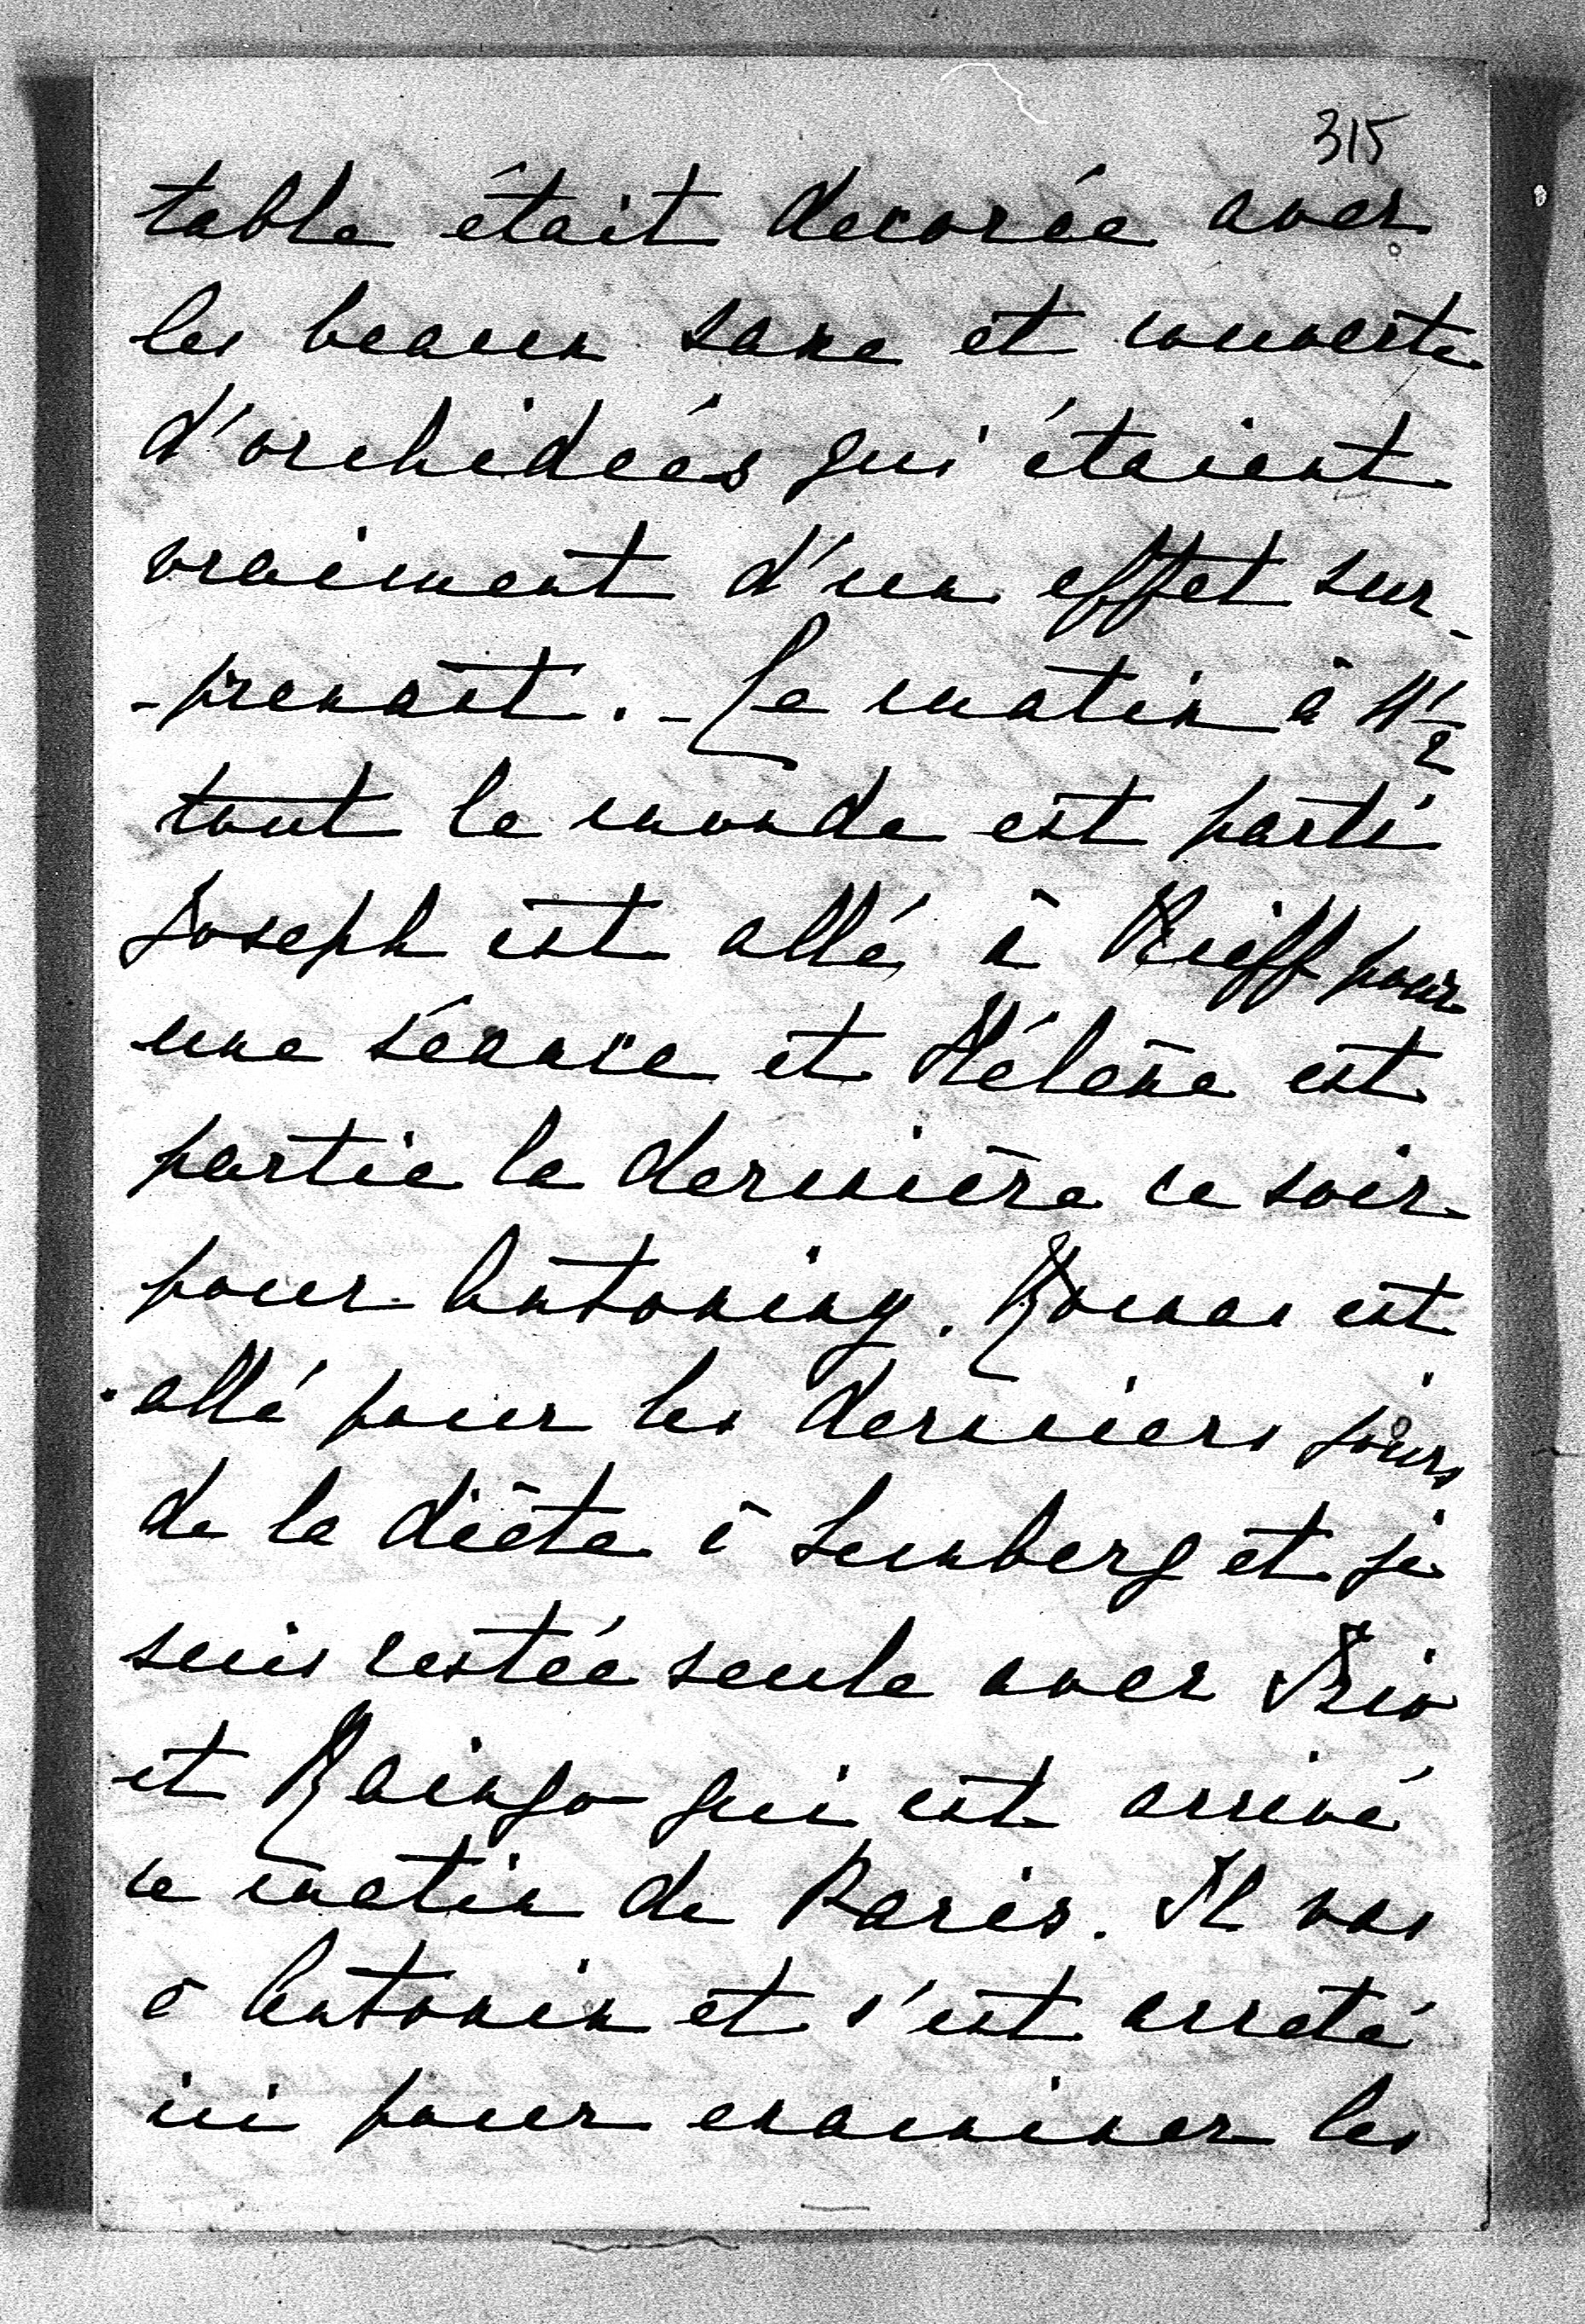 315
table était decorée avec
les beaux saxe et couverte
d'orchideés qui étaient
vraiment d'un effet sur-
-prenant. - Le matin à 11 1/2
tout le monde est parti
Joseph est allé à Kieff pour
une séance et Hélène est
partie la dernière ce soir
pour Antoniny. Roman est
allé pour les derniers jours
de la diète à Lemberg et je
suis restée seule avec
et Raingo qui est arrivé
ce matin de Paris. Il vas
à Antonin et s'est arreté
ici pour examiner les